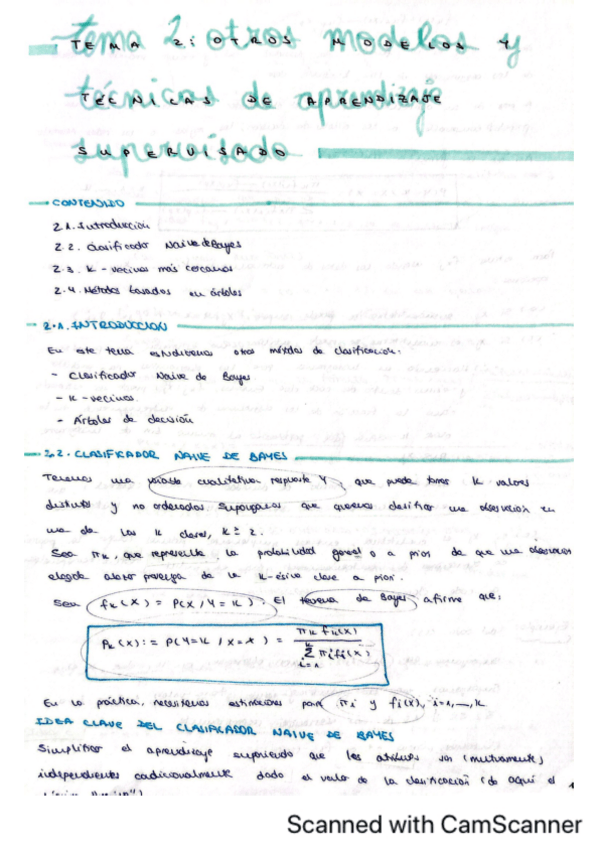 TEMA 2: OTROS MODELOS Y
TÉCNICAS DE APRENDIZAJE
SUPERVISADO
CONTENIDO
2.1. Introducción
2.2. Clasificador Naive de Bayes
2.3. K-vecinos más cercanos
2.4. Métodos basados en árboles
2.1. INTRODUCCIÓN
En este tema estudiaremos otros métodos de clasificación:
- Clasificador Naive de Bayes
- K-vecinos
- Árboles de decisión
2.2. CLASIFICADOR NAIVE DE BAYES
Tenemos una variable cualitativa respuesta Y, que puede tomar K valores
distintos y no ordenados. Supongamos que queremos clasificar una observación en
una de las K clases, K ≥ 2.
Sea πk, que representa la probabilidad general o a priori de que una observación
elegida al azar provenga de la K-ésima clase a priori.
Sea fk(x) = P(X / Y = k). El teorema de Bayes afirma que:
Pk(x) := P(Y=k / X=x) = πk fk(x) / Σ πi fi(x)
i=1
En la práctica, necesitamos estimaciones para πi y fi(x), i=1,...,K
IDEA CLAVE DEL CLASIFICADOR NAIVE DE BAYES
Simplificar el aprendizaje suponiendo que los atributos son (mutuamente)
independientes condicionalmente dado el valor de la clasificación (de aquí el
Scanned with CamScanner